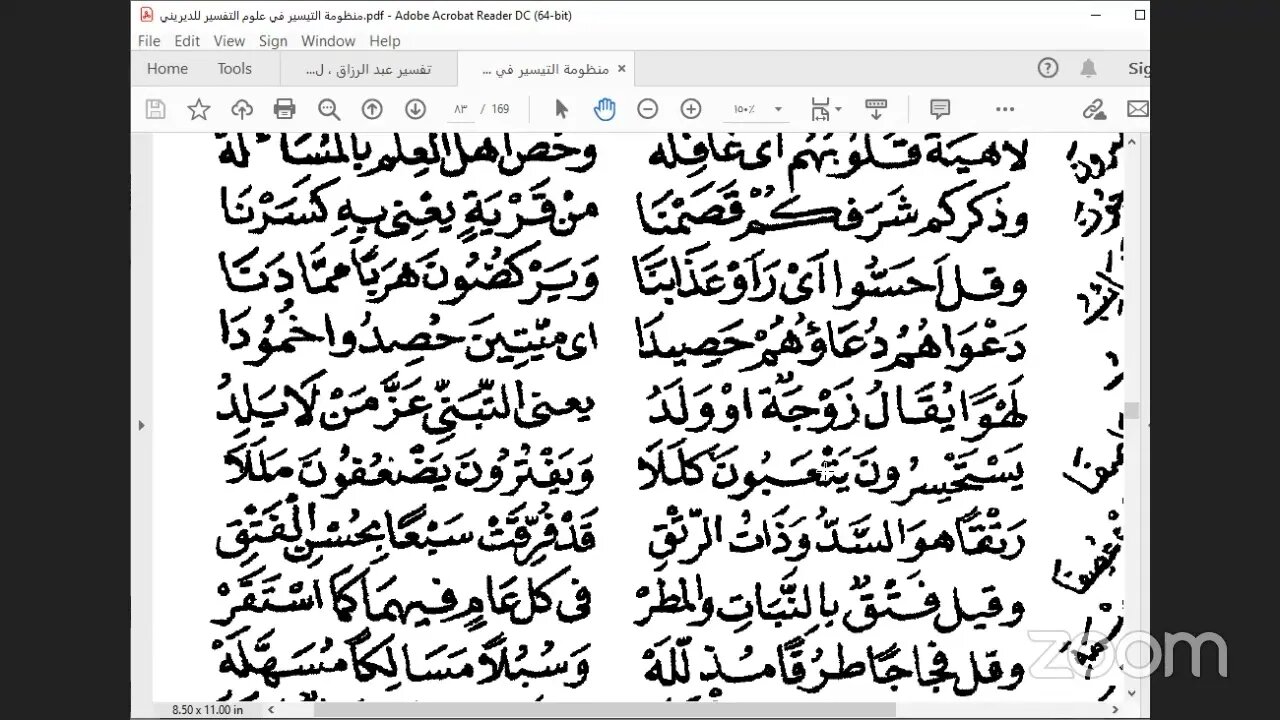 منظومة التيسير في علوم التفسير للديريني.pdf - Adobe Acrobat Reader DC (64-bit)
File Edit View Sign Window Help
Home Tools تفسير عبد الرزاق ، ل... منظومة التيسير في ... × Sig
٨٣ / 169 ١٥٠٪
لَاهِيَةً قُلُوبُهُم اى غَافِلَه وخَصَّ اهلَ العِلمِ بِالمُسَاءَلَهْ
وذكركم شَرَفكُمْ قَصَمْنَا مِنْ قَرْيَةٍ يَعْنِى بِهِ كَسَرْنَا
وقل اَحَسُّوا اَىْ رَاَوْ عَذَابَنَا وَيَرْكُضُونَ هَرَبًا مِمَّا دَنَا
دَعْوَاهُمُ دُعَاؤُهُمْ حَصِيدَا اى مَيِّتِينَ حُصِدُوا خُمُودَا
لَهْوًا يُقَالُ زَوْجَةٌ اوْ وَلَدُ يعنى التَّبَنِّى عَزَّ مَنْ لَا يَلِدُ
يَسْتَحْسِرُونَ يَتْعَبُونَ كَلَلَا وَيَفْتُرُونَ يَضْعُفُونَ مَلَلَا
رَتْقًا هو السَّدُّ وَذَاتُ الرَّتْقِ قَدْ فُرِّقَتْ سَبْعًا بِحُسْنِ الفَتْقِ
وقيل فَتْقٌ بِالنَّبَاتِ والمَطَرْ فى كل عَامٍ فيهِمَا كَمَا اسْتَقَرْ
وقل فجَاجًا طرُقًا مُذَلَّلَهْ وَسُبُلًا مَسَالِكًا مُسَهَّلَهْ
zoom
8.50 x 11.00 in